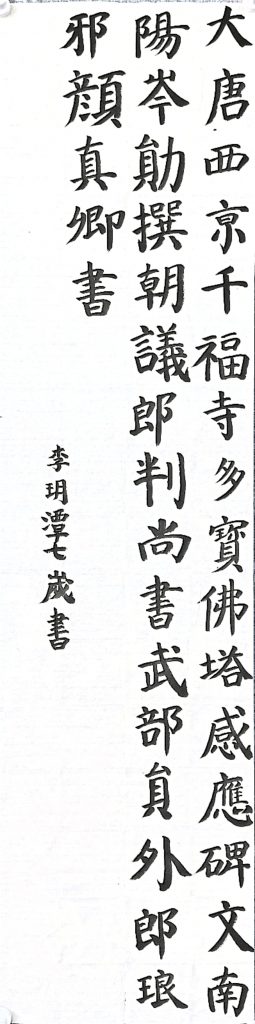 大唐西京千福寺多寶佛塔感應碑文南
陽岑勛撰朝議郎判尚書武部員外郎琅
邪顔真卿書
李玥潭七歲書